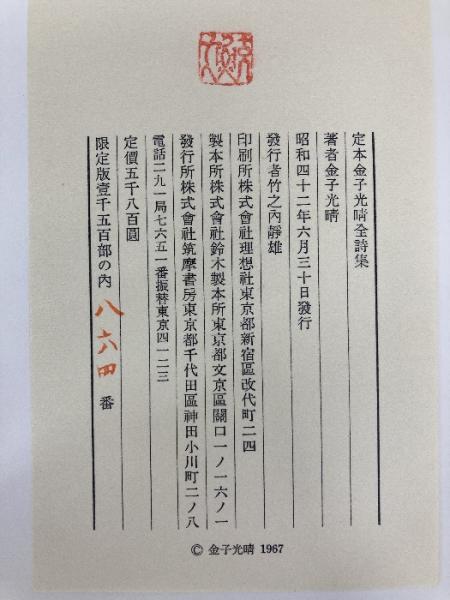 定本金子光晴全詩集
著者金子光晴
昭和四十二年六月三十日發行
發行者竹之內靜雄
印刷所株式會社理想社東京都新宿區改代町二四
製本所株式會社鈴木製本所東京都文京區關口一ノ一六ノ一
發行所株式會社筑摩書房東京都千代田區神田小川町二ノ八
電話二九一局七六五一番振替東京四一二三
定價五千八百圓
限定版壹千五百部の內 八六四 番
© 金子光晴 1967